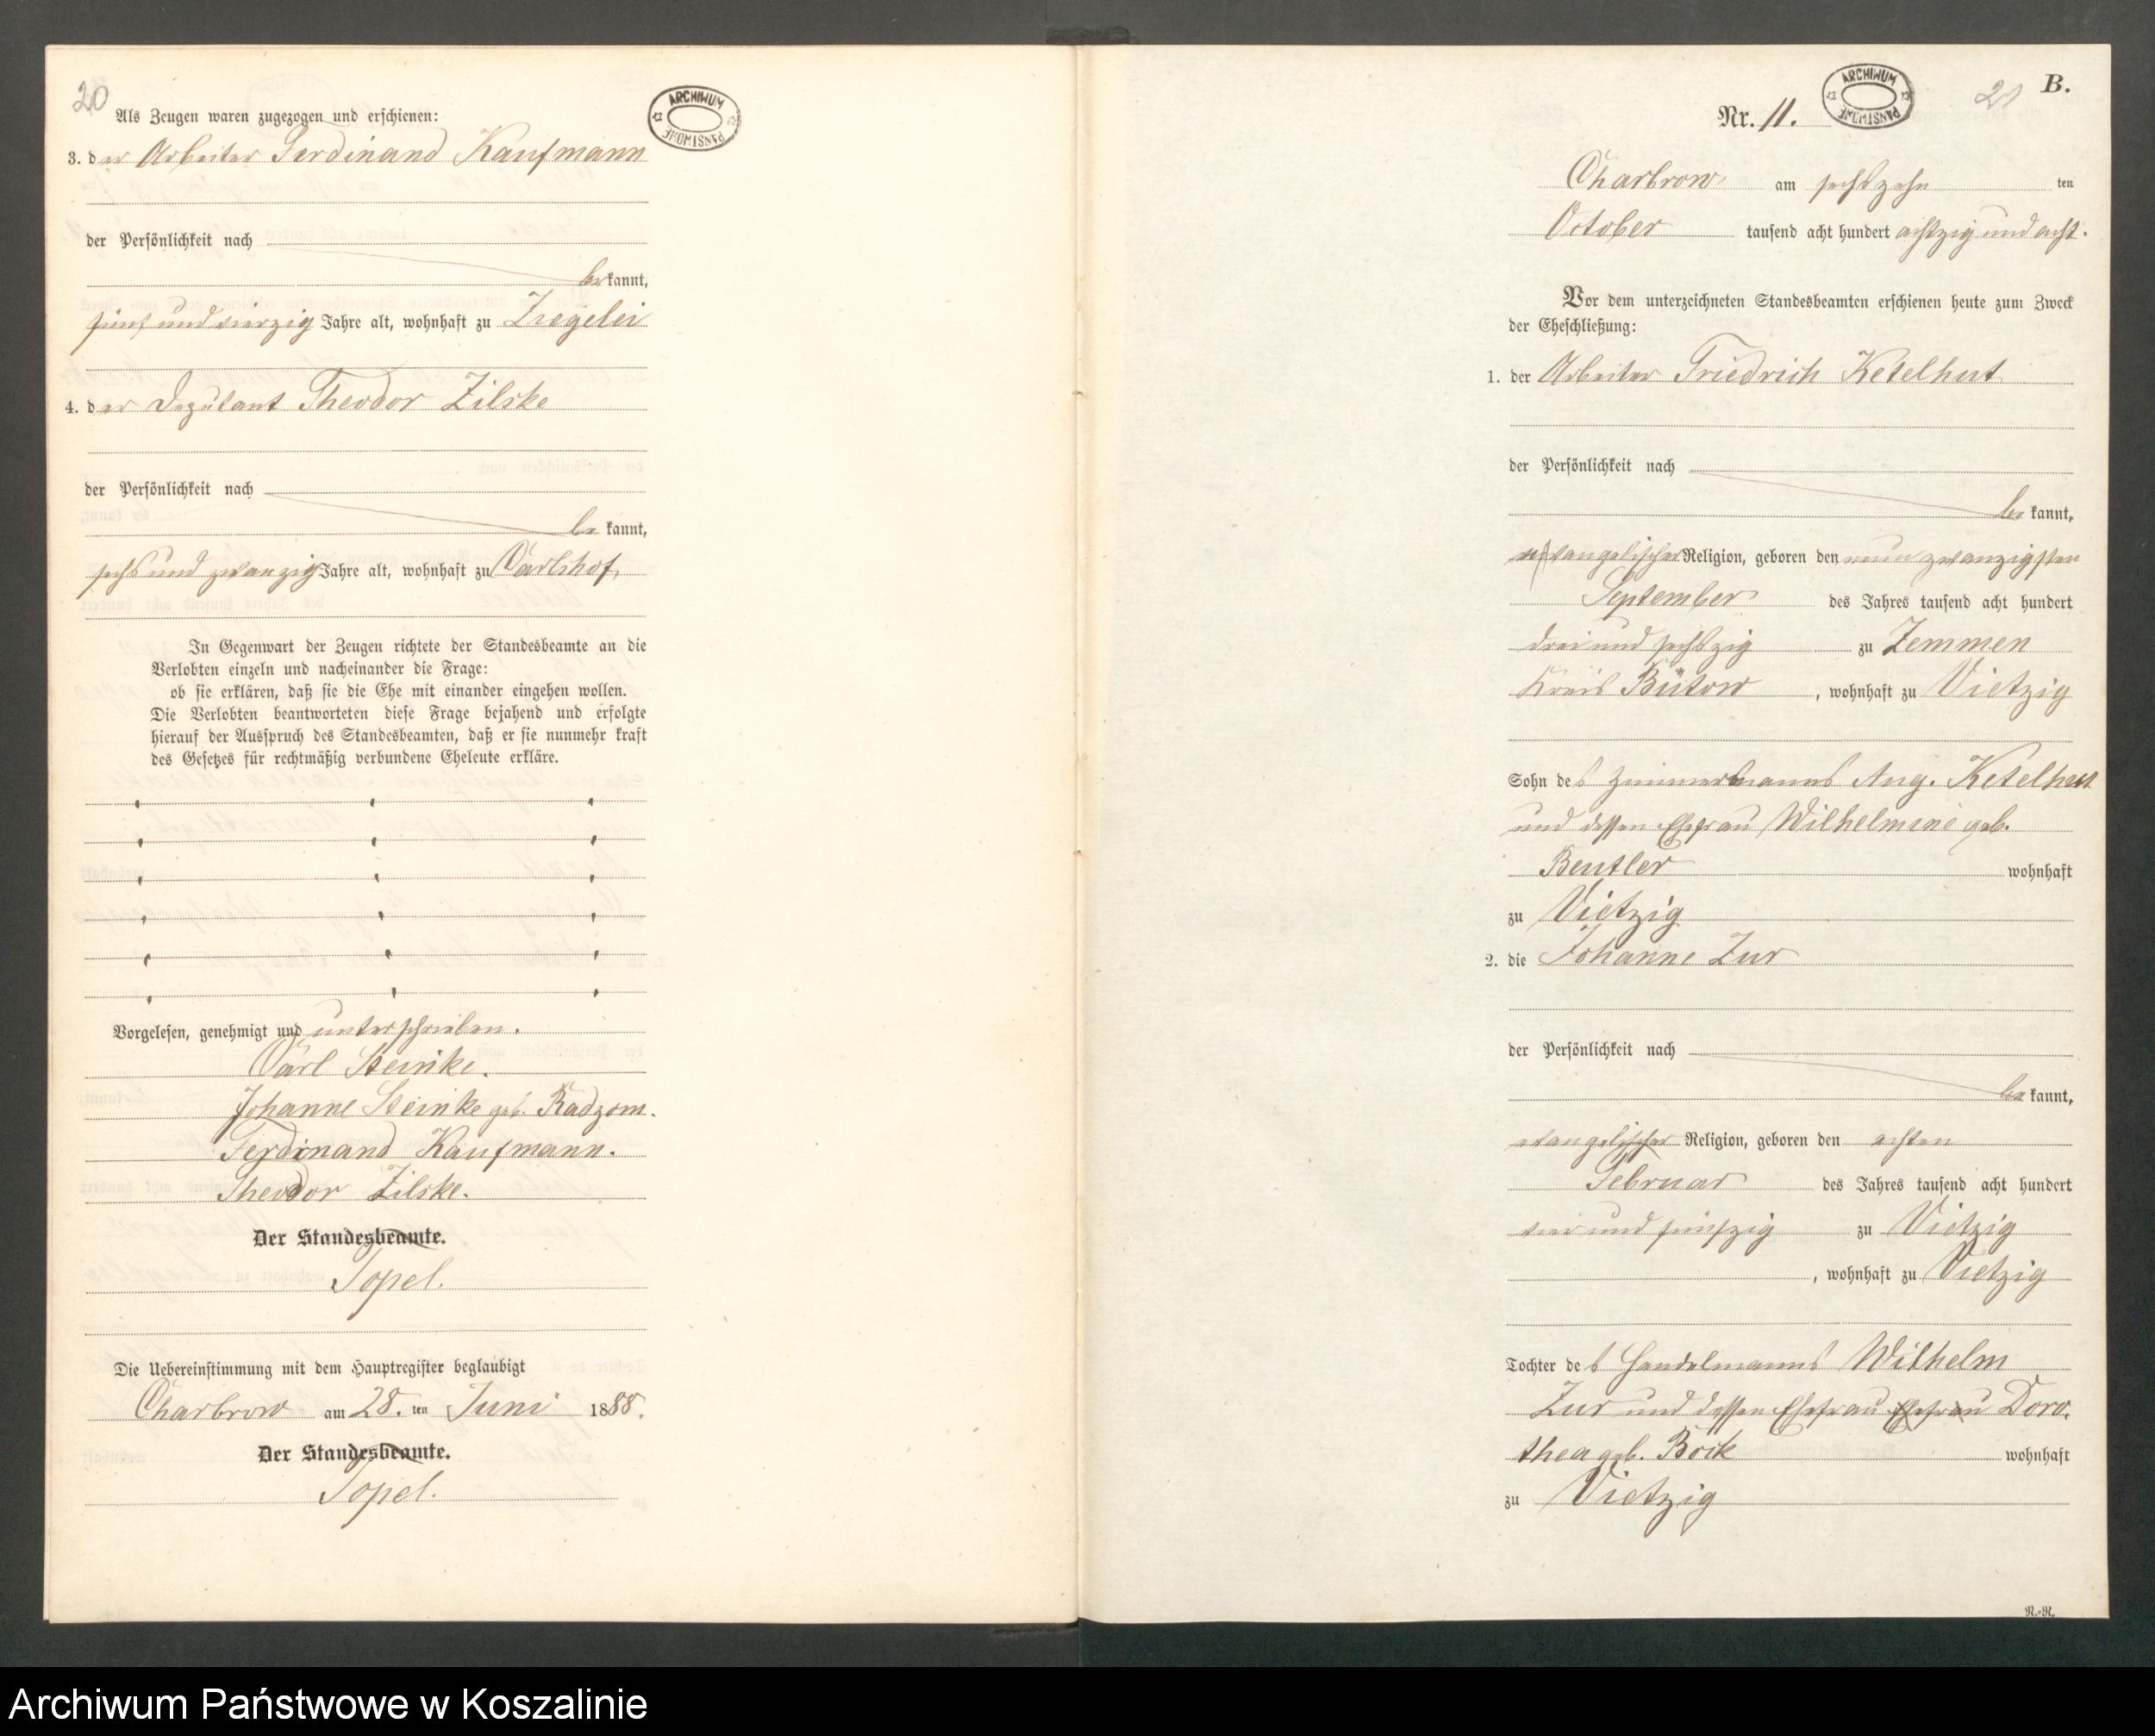 20
ARCHIWUM PAŃSTWOWE
Als Zeugen waren zugezogen und erschienen:
3. der Arbeiter Ferdinand Kaufmann
der Persönlichkeit nach
bekannt,
fünf und vierzig Jahre alt, wohnhaft zu Ziegelei
4. der Deputant Theodor Zilske
der Persönlichkeit nach
bekannt,
sechs und zwanzig Jahre alt, wohnhaft zu Carlshof,
In Gegenwart der Zeugen richtete der Standesbeamte an die
Verlobten einzeln und nacheinander die Frage:
ob sie erklären, daß sie die Ehe mit einander eingehen wollen.
Die Verlobten beantworteten diese Frage bejahend und erfolgte
hierauf der Ausspruch des Standesbeamten, daß er sie nunmehr kraft
des Gesetzes für rechtmäßig verbundene Eheleute erkläre.
Vorgelesen, genehmigt und unterschrieben.
Carl Steinke.
Johanne Steinke geb. Radzom.
Ferdinand Kaufmann.
Theodor Zilske.
Der Standesbeamte.
Topel.
Die Uebereinstimmung mit dem Hauptregister beglaubigt
Charbrow am 28. ten Juni 1888.
Der Standesbeamte.
Topel.
B.
21
ARCHIWUM PAŃSTWOWE
Nr. 11.
Charbrow am sechszehn ten
October tausend acht hundert achtzig und acht.
Vor dem unterzeichneten Standesbeamten erschienen heute zum Zweck
der Eheschließung:
1. der Arbeiter Friedrich Ketelhut
der Persönlichkeit nach
bekannt,
evangelischer Religion, geboren den neun zwanzigsten
September des Jahres tausend acht hundert
drei und sechszig zu Zemmen
Kreis Bütow, wohnhaft zu Vietzig
Sohn des Zimmermanns Aug. Ketelhut
und dessen Ehefrau Wilhelmine geb.
Beutler wohnhaft
zu Vietzig
2. die Johanne Zur
der Persönlichkeit nach
bekannt,
evangelischer Religion, geboren den achten
Februar des Jahres tausend acht hundert
vier und fünfzig zu Vietzig
, wohnhaft zu Vietzig
Tochter des Handelmanns Wilhelm
Zur und dessen Ehefrau Ehefrau Doro.
thea geb. Bock wohnhaft
zu Vietzig
N.-N.
Archiwum Państwowe w Koszalinie